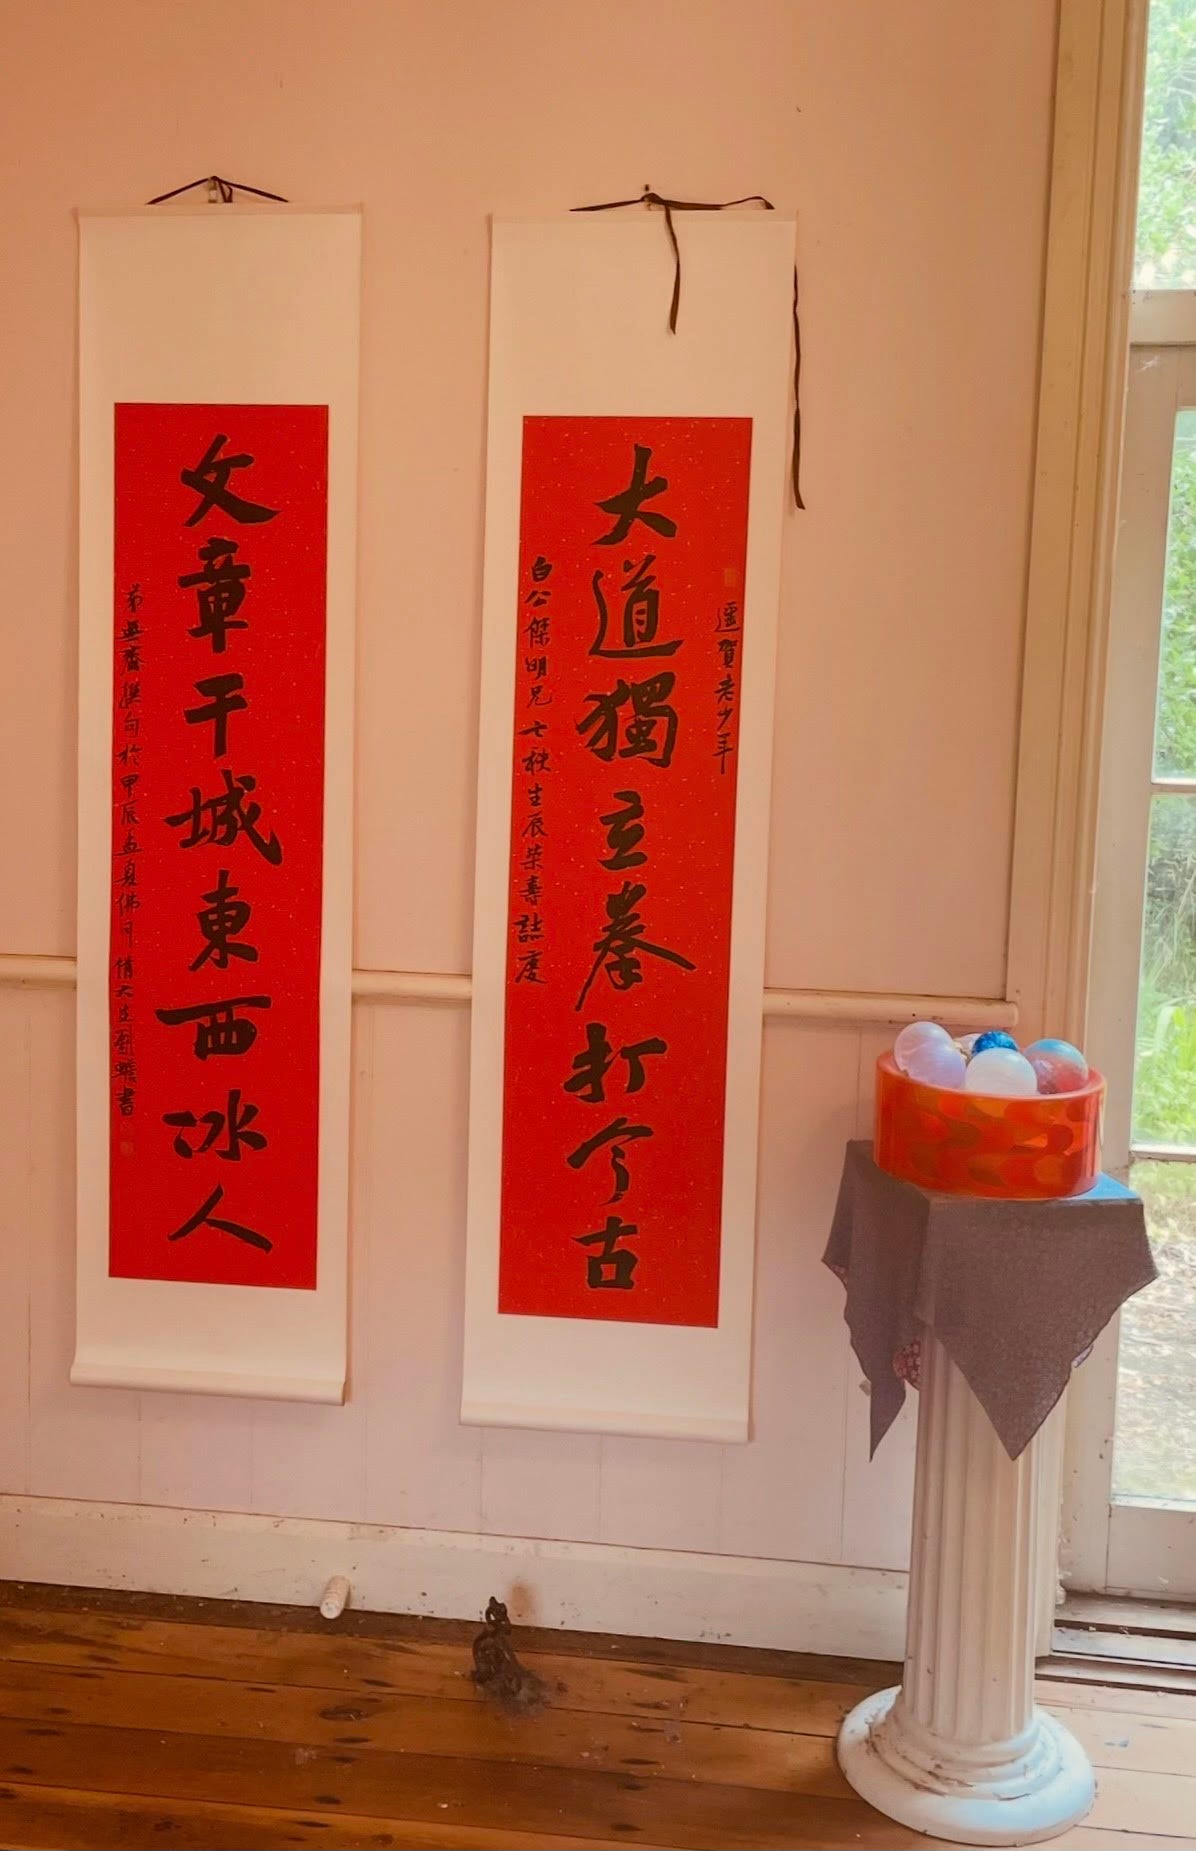 遥賀老少年
大道獨立拳打今古
白公傑明兄七秩生辰榮壽誌慶
文章干城東西冰人
弟無齋撰句於甲辰孟夏佛月倩大生劉蟾書